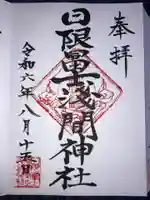 奉拝
日限富士浅間神社
令和六年八月十五日